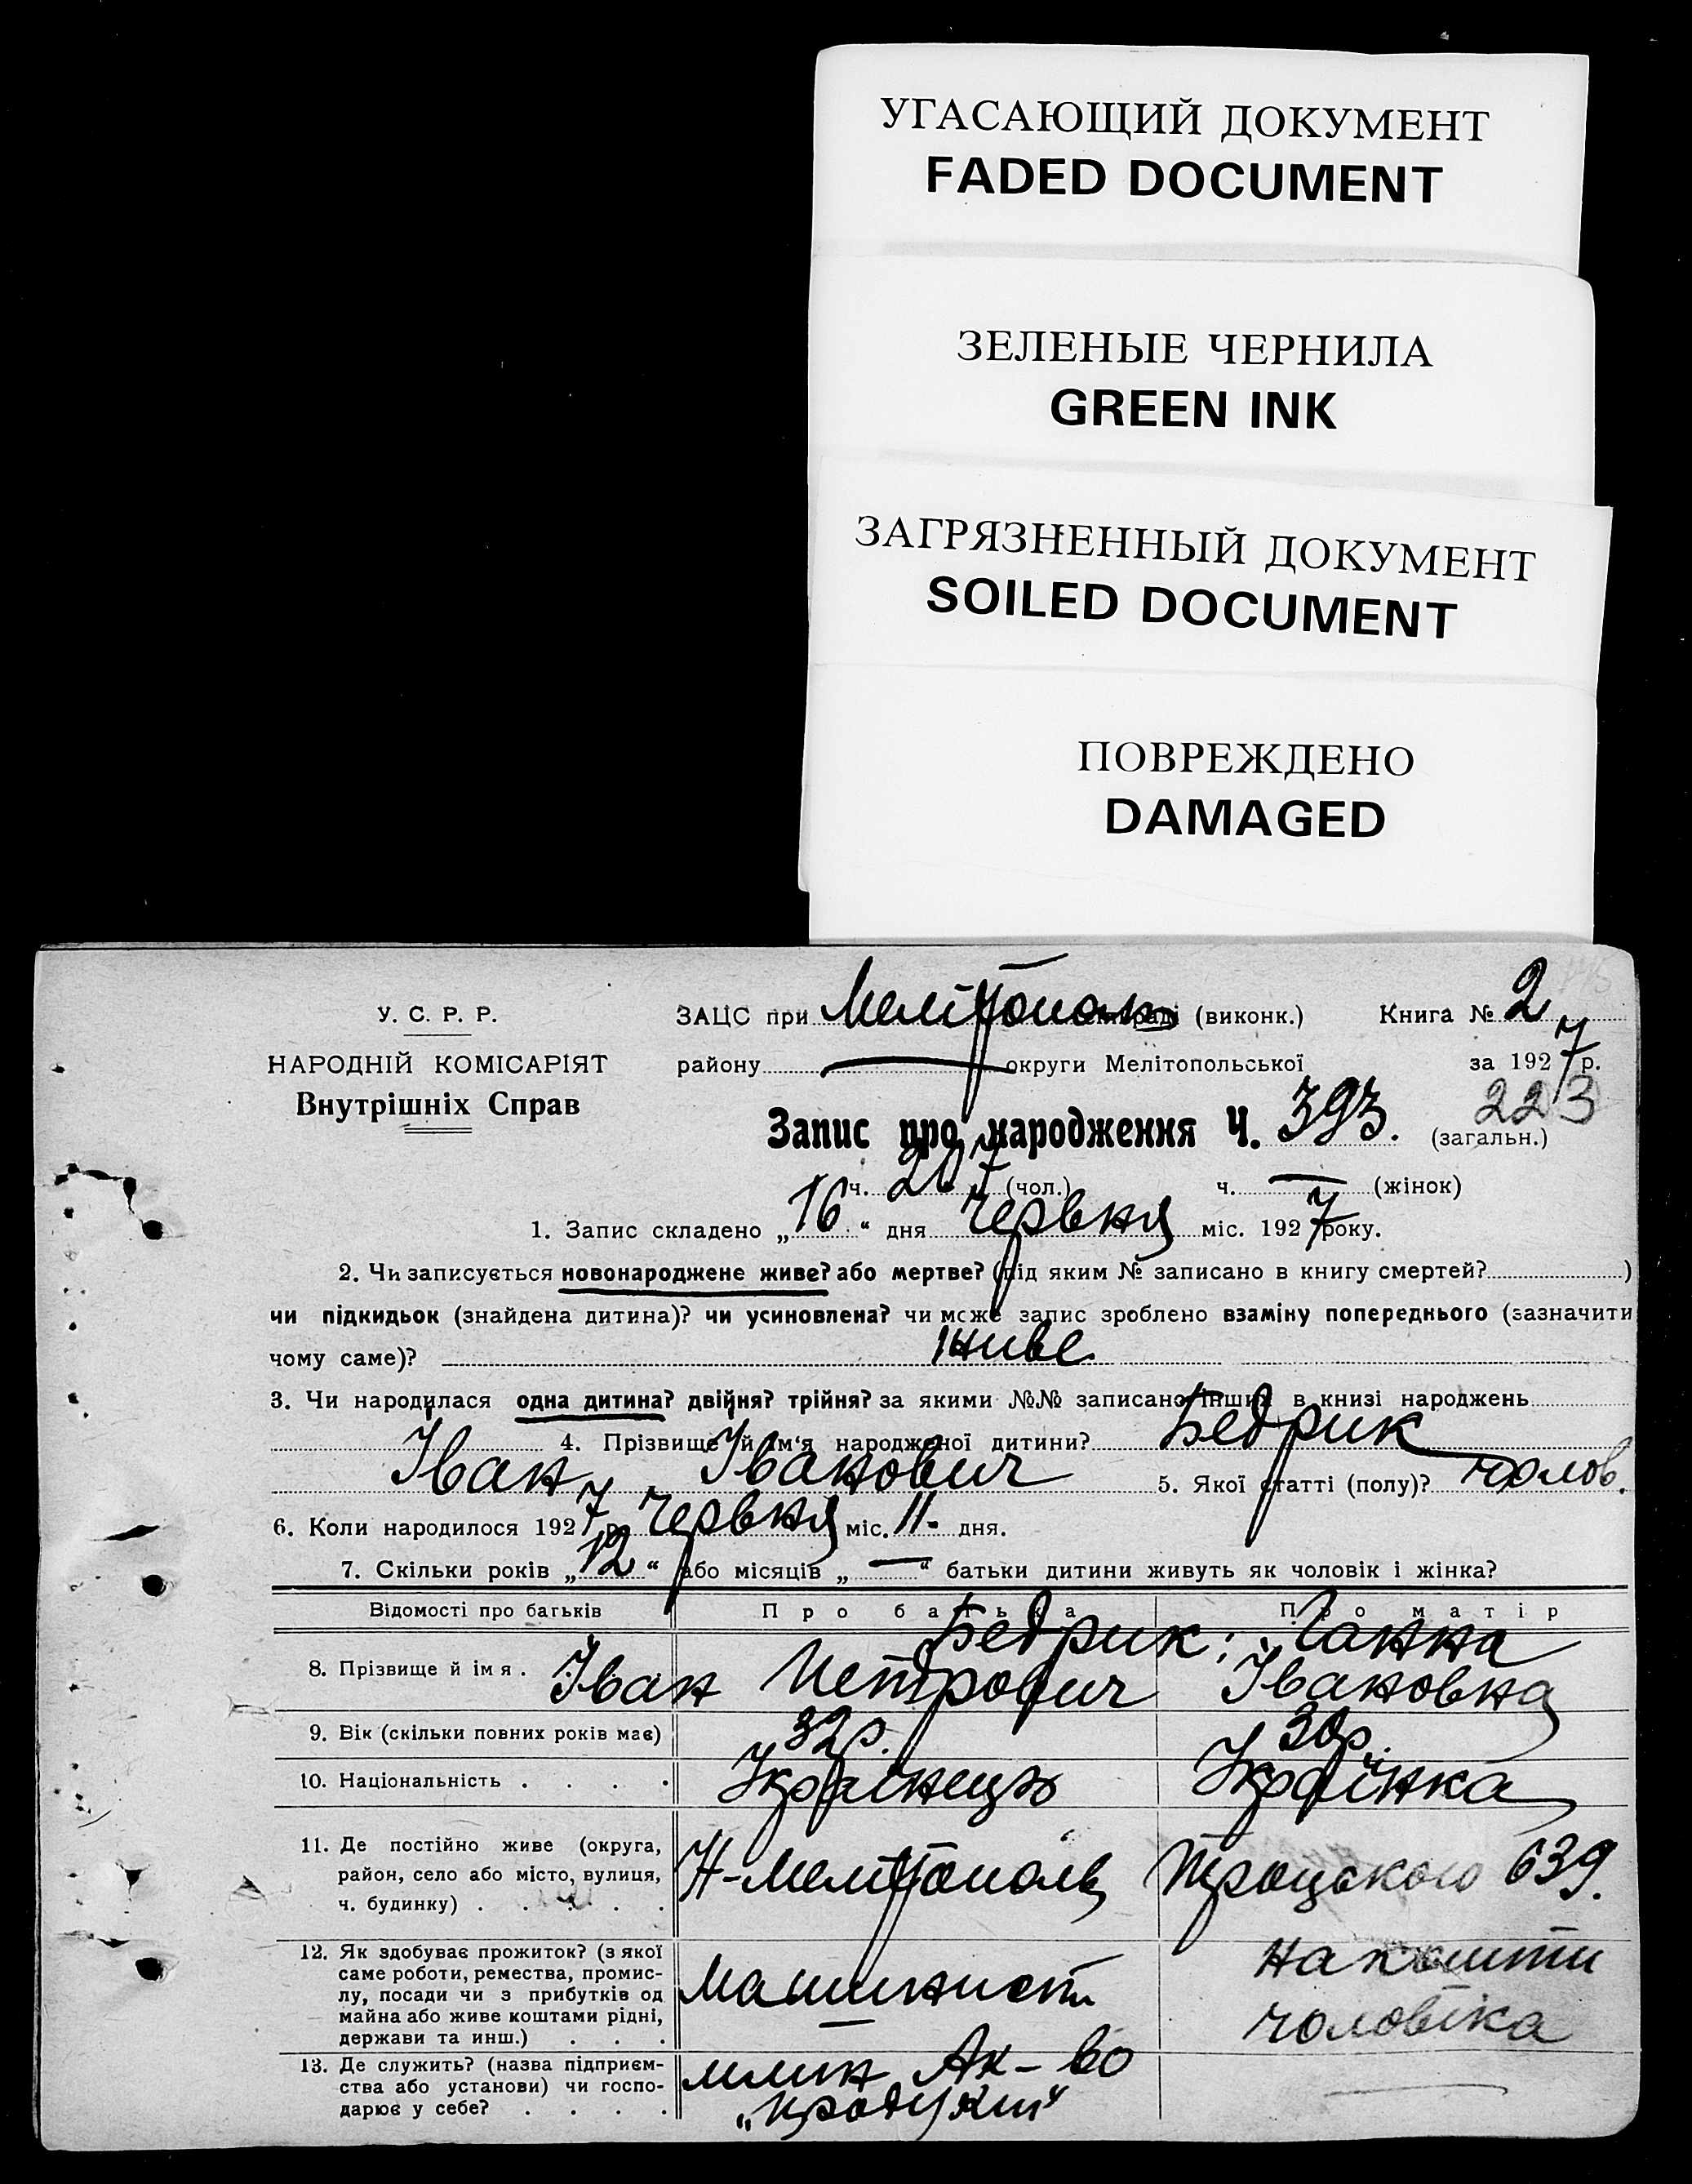 УГАСАЮЩИЙ ДОКУМЕНТ
FADED DOCUMENT
ЗЕЛЕНЫЕ ЧЕРНИЛА
GREEN INK
ЗАГРЯЗНЕННЫЙ ДОКУМЕНТ
SOILED DOCUMENT
ПОВРЕЖДЕНО
DAMAGED
У. С. Р. Р.
НАРОДНІЙ КОМІСАРІЯТ
Внутрішніх Справ
ЗАЦС при Мелітополь (виконк.) Книга № 2
району — округи Мелітопольської за 1927 р.
223
Запис про народження Ч. 393. (загальн.)
ч. 207 (чол.) ч. — (жінок)
1. Запис складено „16“ дня Червня міс. 1927 року.
2. Чи записується новонароджене живе? або мертве? (під яким № записано в книгу смертей? )
чи підкидьок (знайдена дитина)? чи усиновлена? чи може запис зроблено взаміну попереднього (зазначити
чому саме)? живе
3. Чи народилася одна дитина? двійня? трійня? за якими №№ записано інших в книзі народжень
4. Прізвище й ім‘я народженої дитини? Бедрик
Іван Іванович 5. Якої статті (полу)? чолов.
6. Коли народилося 1927 р. Червня міс. 11 дня.
7. Скільки років „12“ або місяців „—“ батьки дитини живуть як чоловік і жінка?
Відомості про батьків Про батька Про матір
Бедрик: Ганна
8. Прізвище й імя. Іван Петрович Івановна
9. Вік (скільки повних років має) 32 р. 30 р.
10. Національність . . . . Українець Українка
11. Де постійно живе (округа,
район, село або місто, вулиця,
ч. будинку) . . . . .
Н-Мелітополь Троцького 639.
12. Як здобуває прожиток? (з якої
саме роботи, ремества, промис-
лу, посади чи з прибутків од
майна або живе коштами рідні,
держави та инш.) . . .
Машинист
На кошти
чоловіка
13. Де служить? (назва підприєм-
ства або установи) чи госпо-
дарює у себе? . . . .
млин Ак-во